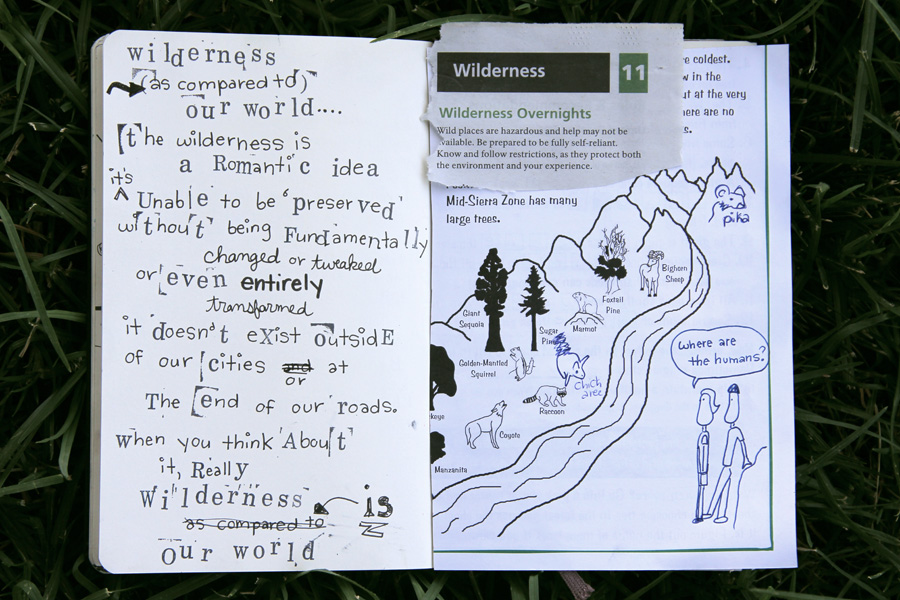 wilderness
(as compared to)
our world....
the wilderness is
a Romantic idea
it's
^ Unable to be 'preserved'
without being Fundamentally
changed or tweaked
or even entirely
transformed
it doesn't exist outsidE
of our cities and at
or
The end of our roads.
when you think About
it, Really
Wilderness is
as compared to
our world
Wilderness 11
Wilderness Overnights
Wild places are hazardous and help may not be
available. Be prepared to be fully self-reliant.
Know and follow restrictions, as they protect both
the environment and your experience.
coldest.
in the
at the very
are no
Mid-Sierra Zone has many
large trees.
pika
Bighorn
Sheep
Foxtail
Pine
Marmot
Giant
Sequoia
Sugar
Pine
Golden-Mantled
Squirrel
Chickaree
Raccoon
Coyote
Manzanita
where are
the humans?